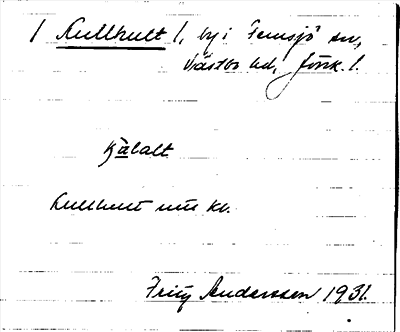 / Kullhult /, by i Femsjö sn,
Västbo hd, förk. /.
kålalt
kullhult ute kv.
Fritz Anderssen 1931.